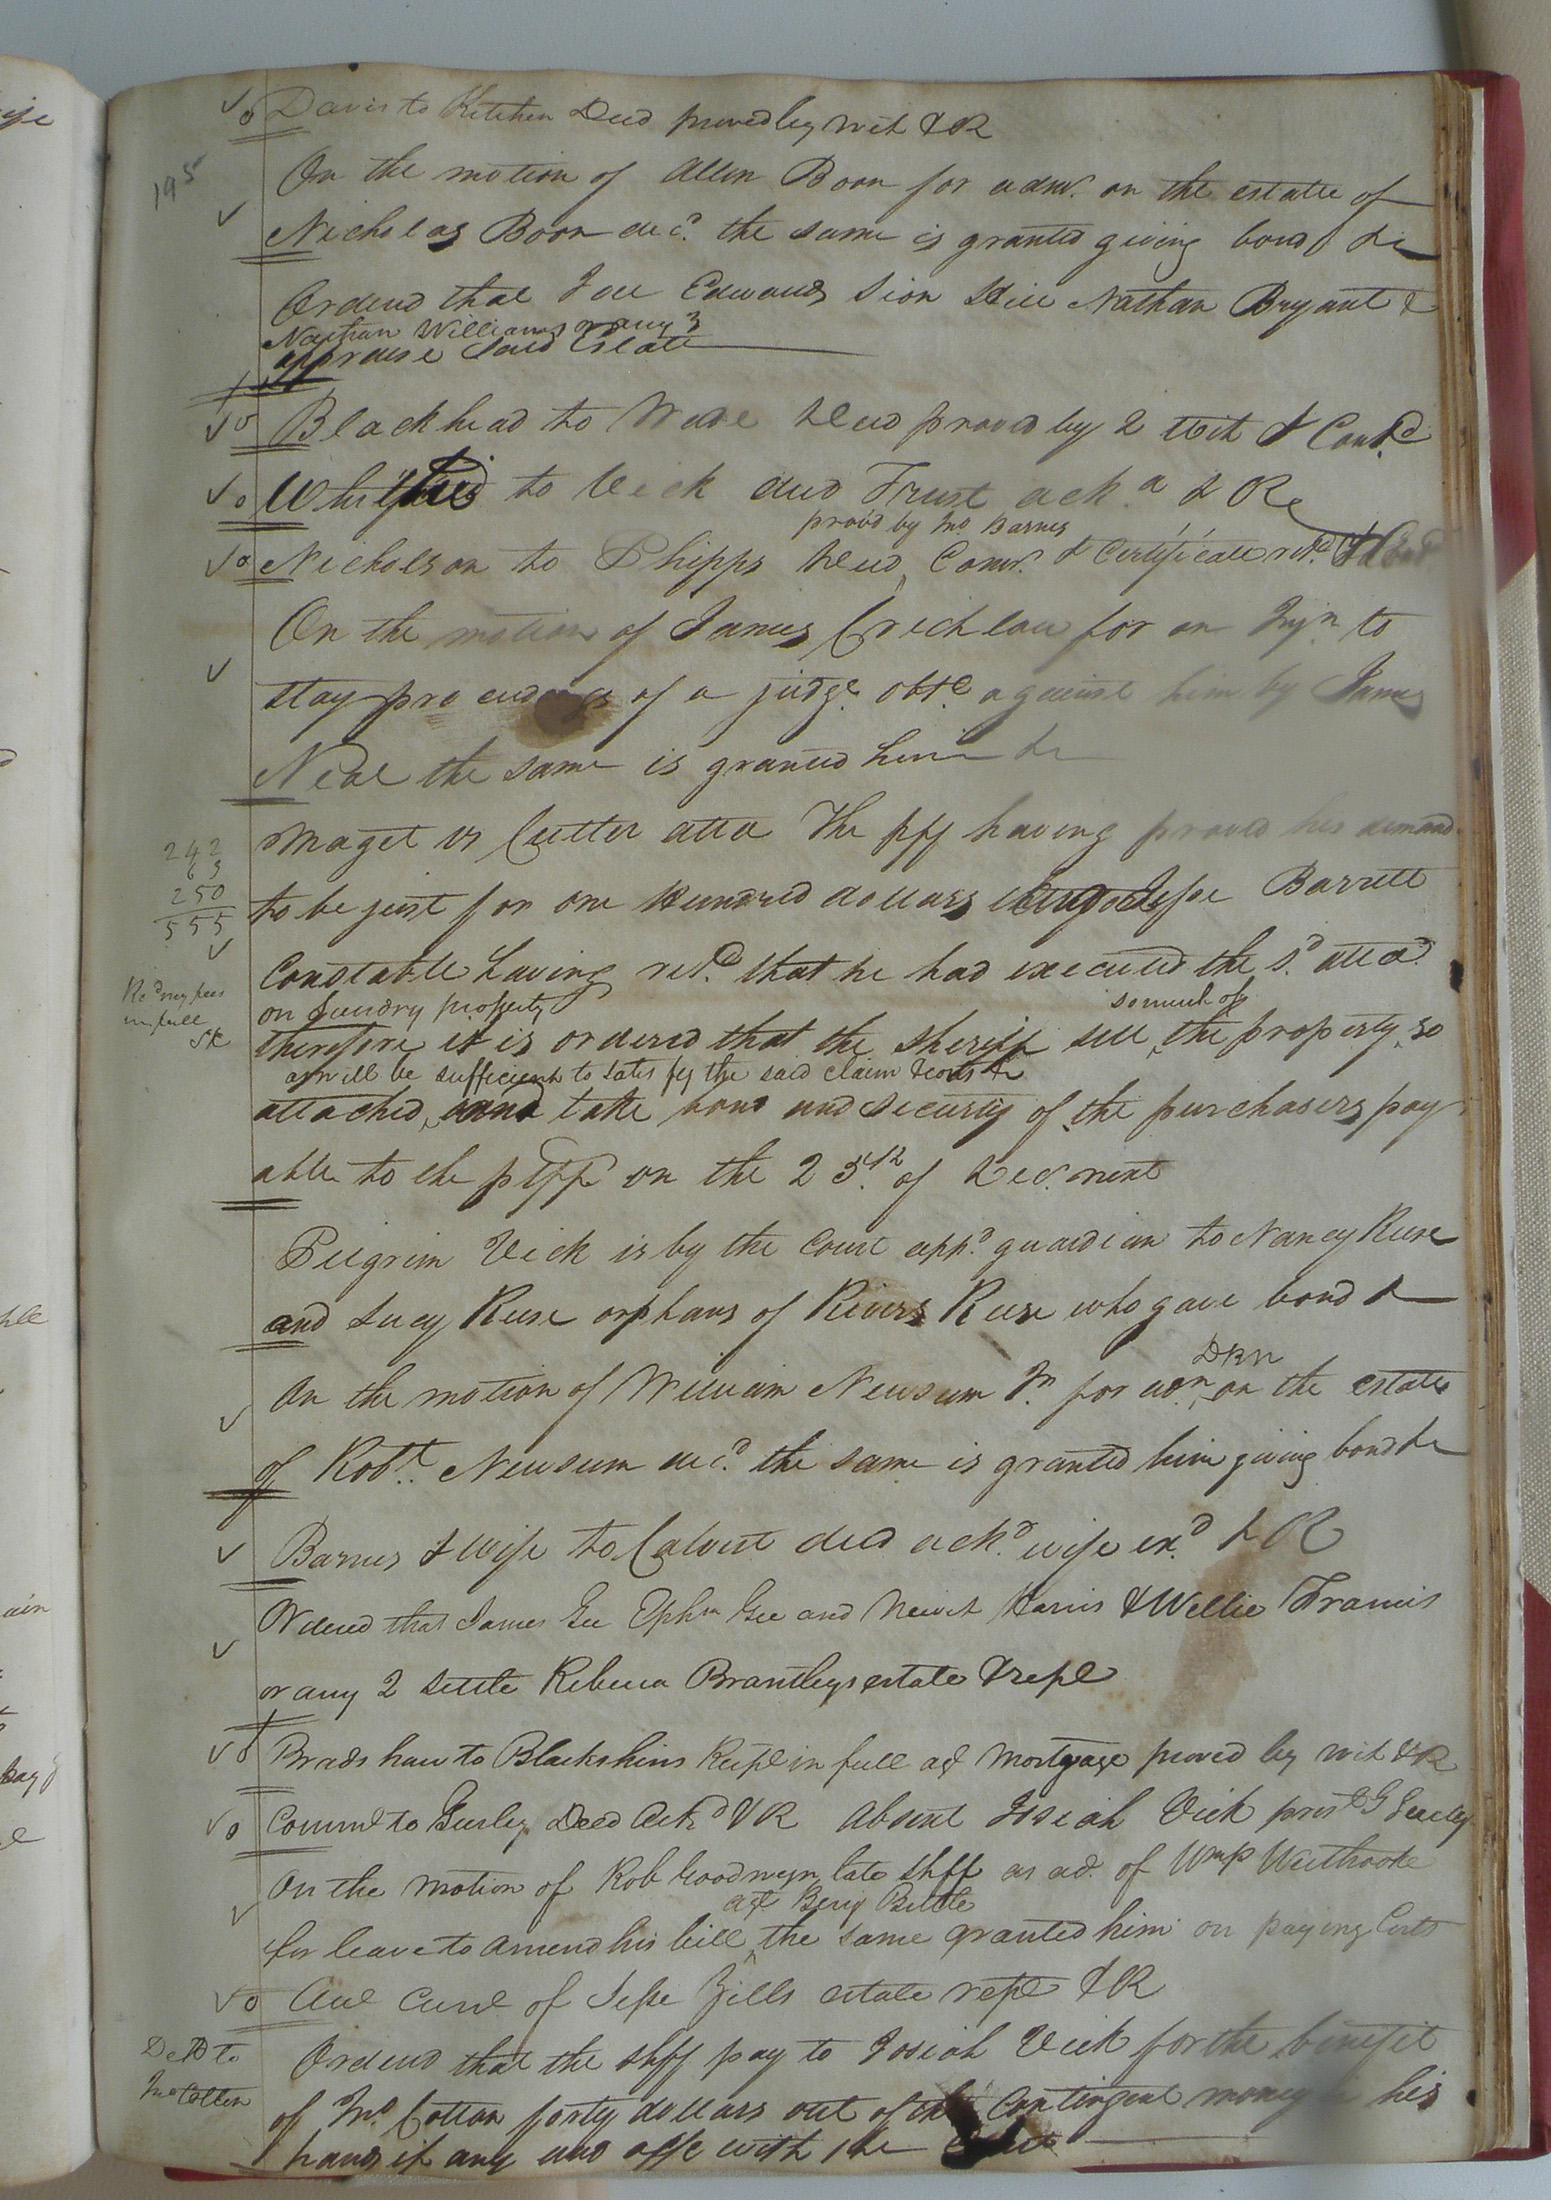 Davis to Kitchen Deed proved by wit & R
195
On the motion of Allen Boon for admr. on the estate of
Nicholas Boon decd. the same is granted giving bond &c
Ordered that Joel Edwards Sion Hill Nathan Bryant &
Nathan Williams or any 3
appraise said Estate
Blackhead to Wade Deed proved by 2 wit & Contd
Whitfield to Vick deed Trust ackd & R
provd by Jno Barnes
Nicholson to Phipps Deed Comr. & Certificate retd.
On the motion of James Crichlow for an Injn to
stay proceedings of a judgt. obtd. against him by James
Neal the same is granted him &c
Maget vs Cutter atta The plf having proved his demand
242
63
250
555
to be just for one Hundred dollars Jesse Barrett
Constable having retd. that he had executed the sd. attat.
Recd my fees
in full
SK
on sundry property
so much of
therefore it is ordered that the Sheriff sell the property so
as will be sufficient to satisfy the said claim & costs &c
attached, and take bond and security of the purchasers pay
able to the ptff on the 25th. of Decr. next
Pilgrim Vick is by the Court appd. guardian to Nancy Reese
and Lucy Reese orphans of Rivers Reese who gave bond &
DBN
On the motion of William Newsum Jr. for adn. on the estate
of Robt. Newsum decd. the same is granted him giving bond &c
Barnes & wife to Calvert deed ackd. wife exd. & R
Ordered that James Gee Ephm Gee and Newit Harris & Wellie Francis
or any 2 settle Rebecca Brantleys estate & repl
Bradshaw to Blackshins Recpt in full agt Mortgage proved by wit & R
Council to Gurley Deed Ackd & R Absent Josiah Vick prest G Gurley
On the motion of Rob Goodwyn late shff as ad. of Wm P Westbrooke
agt Benj Bittle
for leave to amend his bill, the same granted him on paying Costs
Aud Curl of Jesse Zills estate rept & R
Deld to
Jno Cotten
Ordered that the shff pay to Josiah Vick for the benefit
of Jno. Cotton forty dollars out of the Contingent money in his
hands if any and if not